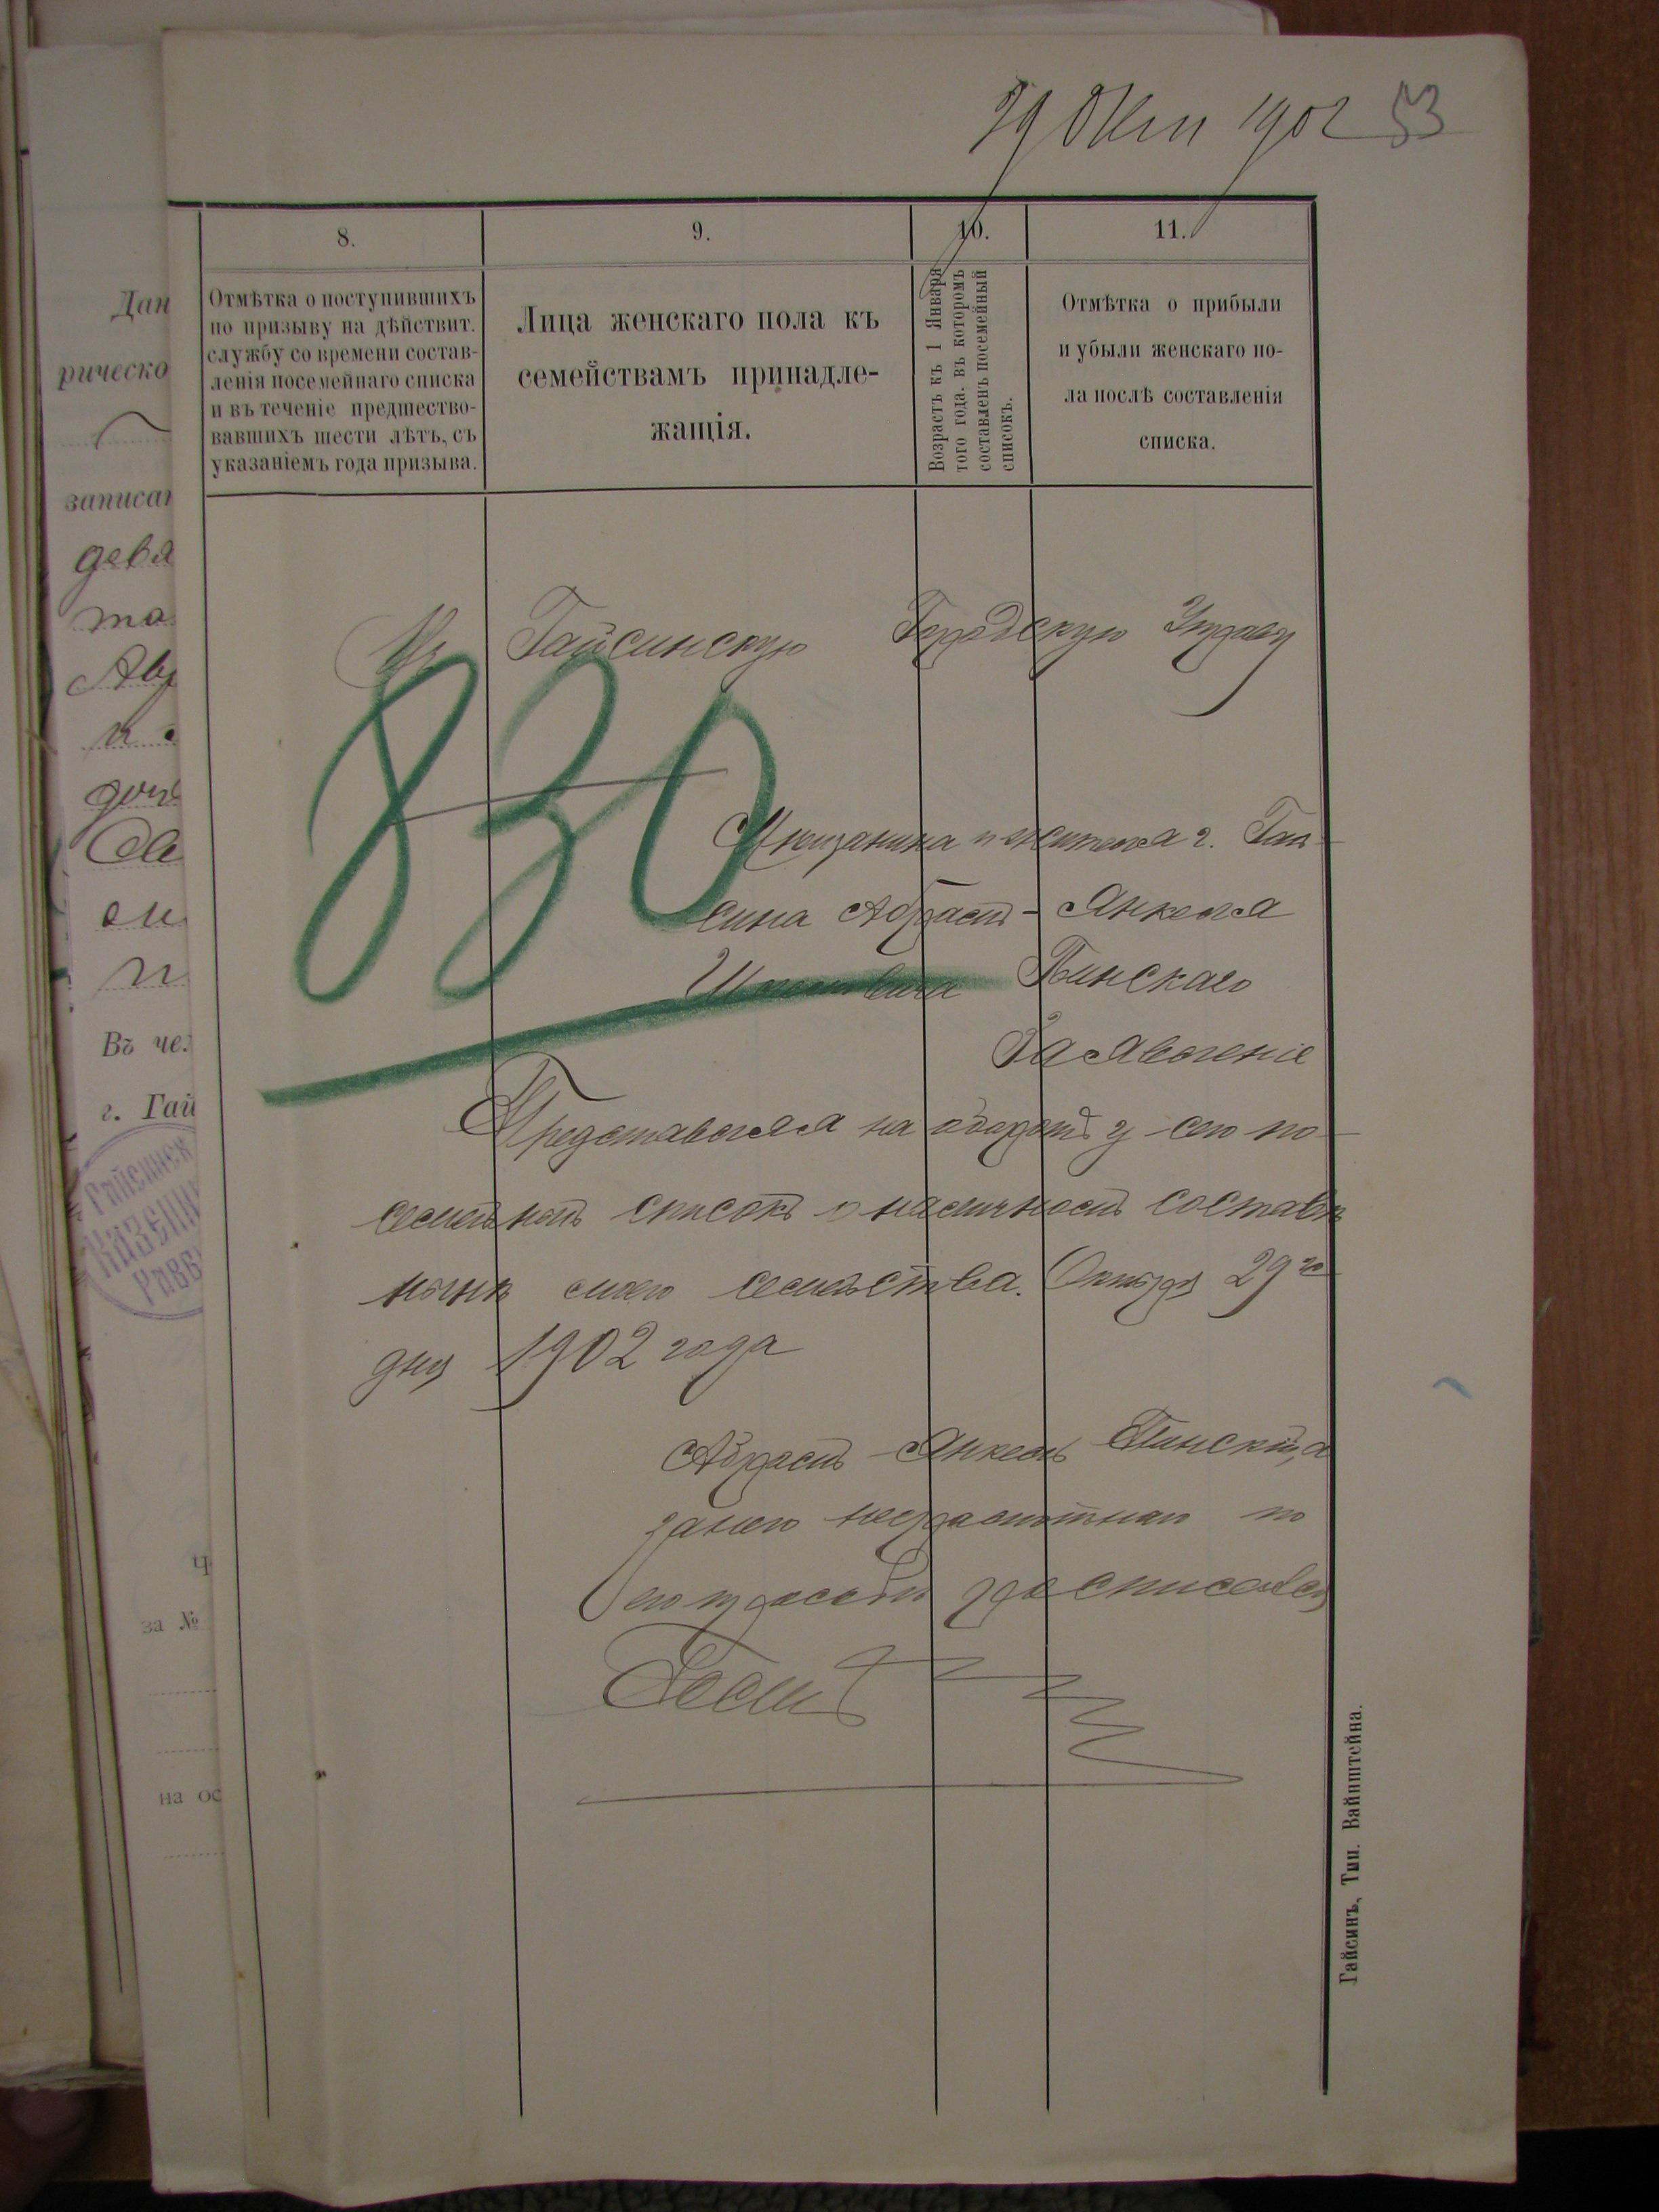 29 Окт 1902 53
8.
9.
10.
11.
Отмѣтка о поступившихъ
по призыву на дѣйствит.
службу со времени состав-
ленія посемейнаго списка
и въ теченіе предшество-
вавшихъ шести лѣтъ, съ
указаніемъ года призыва.
Лица женскаго пола къ
семействамъ принадле-
жащія.
Возрастъ къ 1 Января
того года, въ которомъ
составленъ посемейный
списокъ.
Отмѣтка о прибыли
и убыли женскаго по-
ла послѣ составленія
списка.
Въ Гайсинскую Городскую Управу
830
Мѣщанина и жителя г. Гай-
сина Абрамъ-Янкеля
Пинскаго
Заявленіе
Представляя на оборотѣ сего по-
семейный списокъ о наличномъ составѣ
моего семейства. Октября 29го
дня 1902 года
Абрамъ-Янкель Пинскій, а
за него неграмотнаго по
его просьбѣ росписался
Гайсинъ, Тип. Вайнштейна.
Дан
рическо
записан
девя
та
Ав
и
доч
Въ че
г. Гай
Гайсинск
Казенн
Равв
Ч
за №
на ос